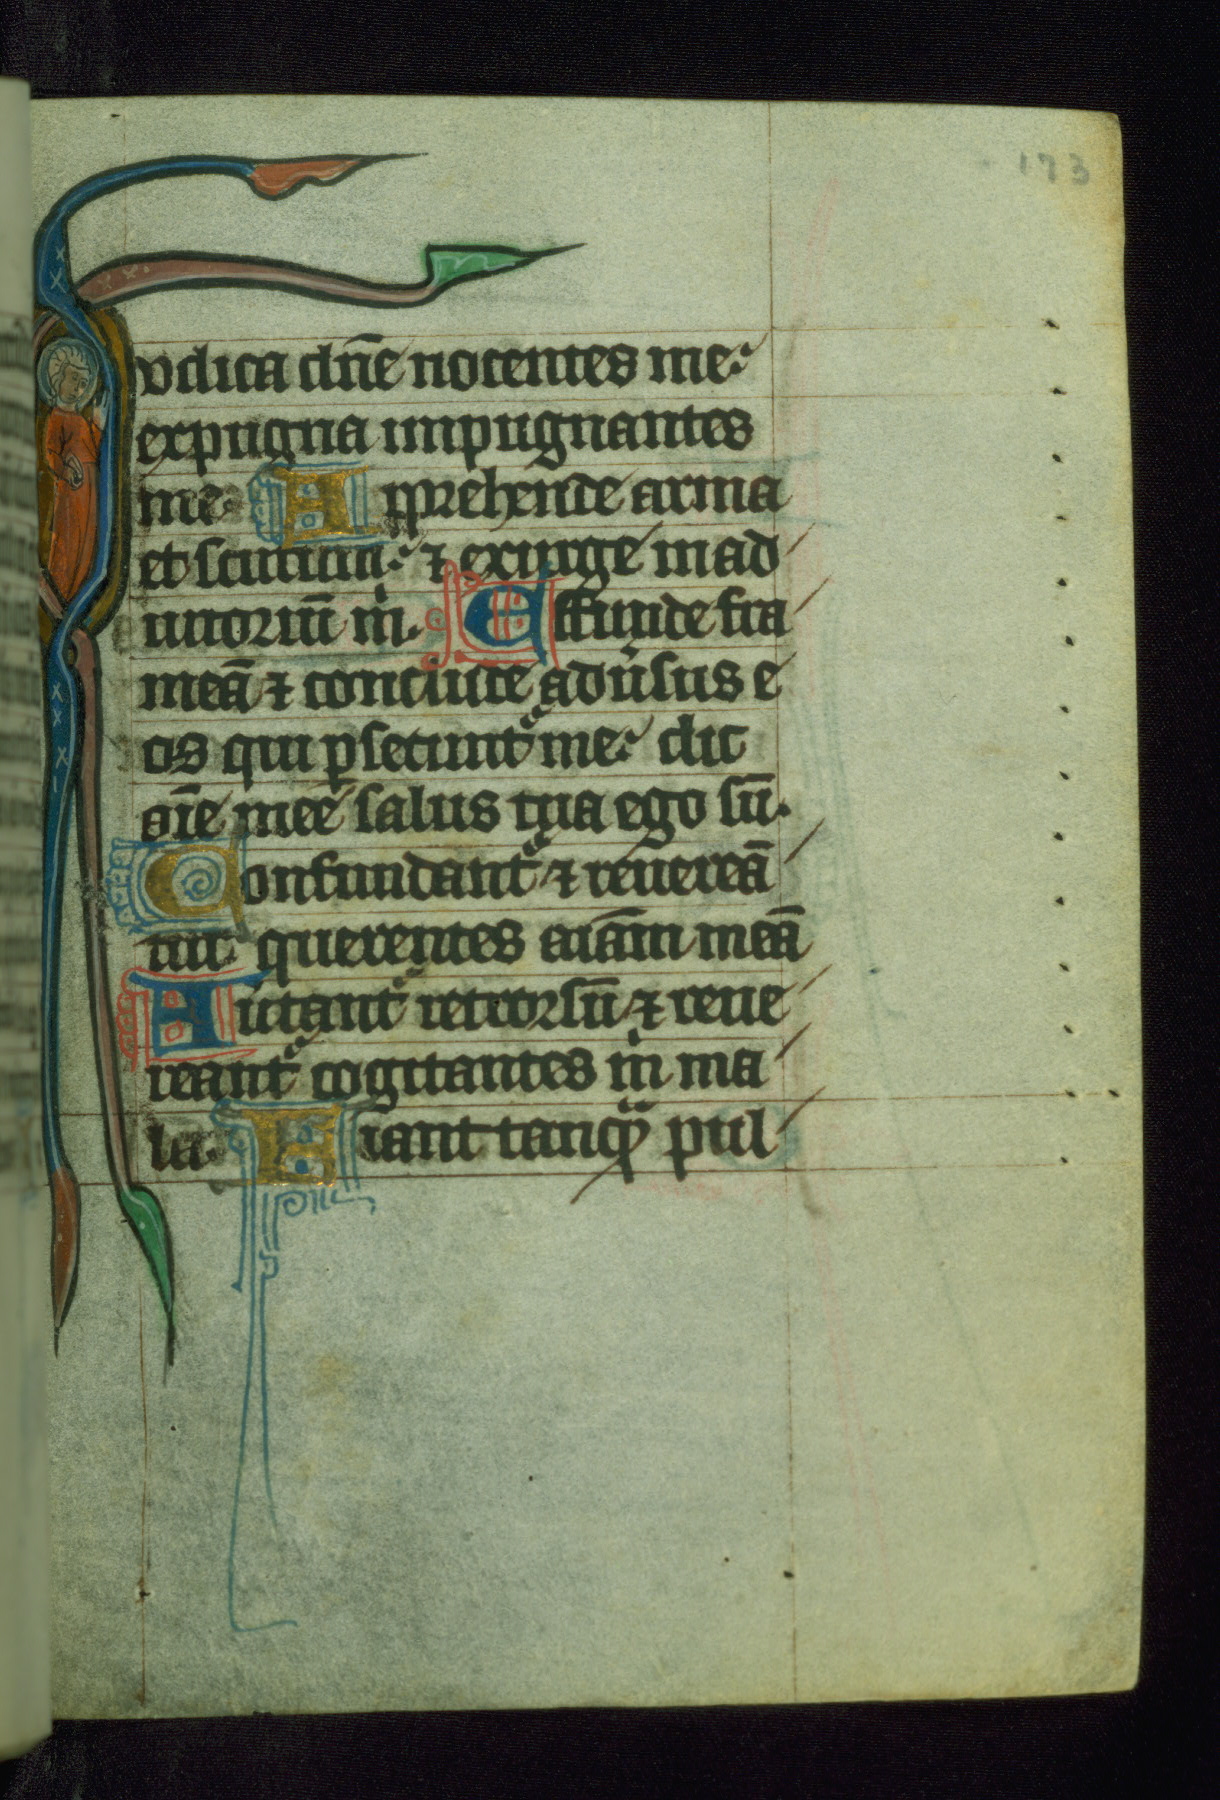 173
udica dn̄e nocentes me:
expugna impugnantes
me. Apprehende arma
et scutum: ⁊ exurge in ad
iutoriū m̅. Effunde fra
meā ⁊ conclude adu̅sus e
os qui ꝑsecunt᷑ me: dic
aīe mee salus tua ego sū.
Confundant᷑ ⁊ reuereā
tur querentes aīam meā
Auertant᷑ retrorsū ⁊ reue
reant᷑ cogitantes m̅ ma
la. Fiant tanq̄ pul